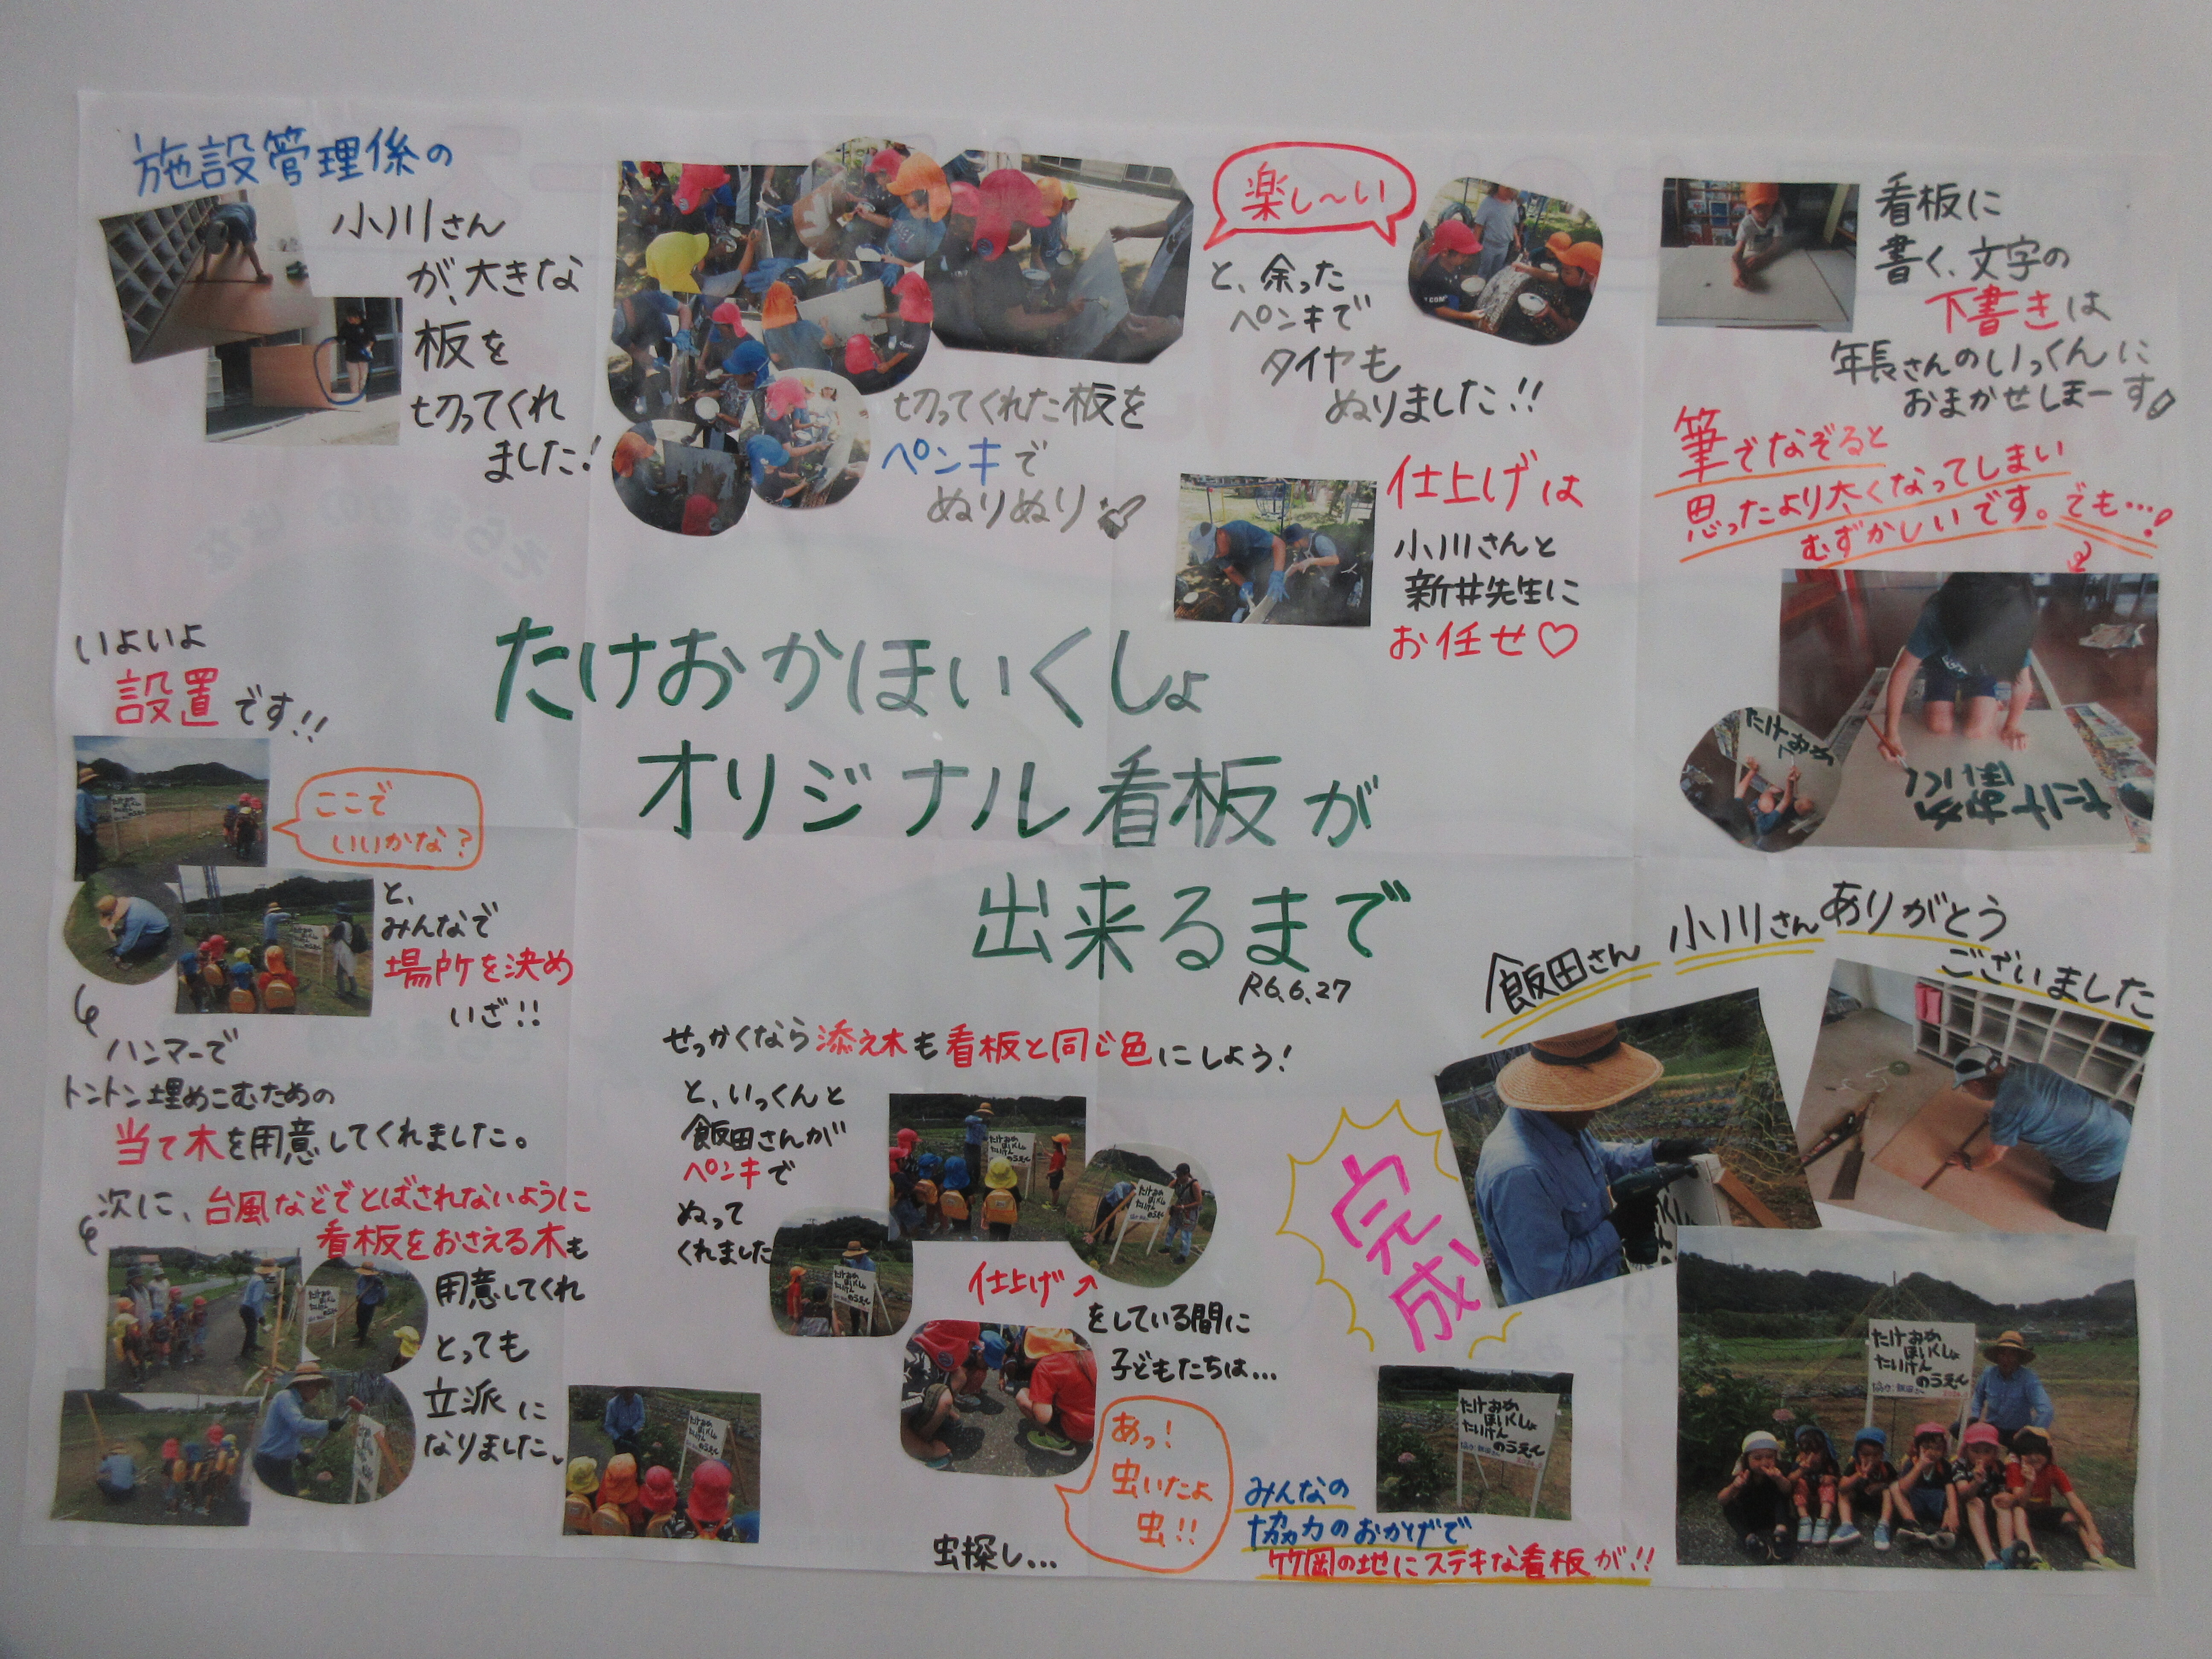 施設管理係の
小川さん
が、大きな
板を
切ってくれ
ました!
切ってくれた板を
ペンキで
ぬりぬり
楽し～い
と、余った
ペンキで
タイヤも
ぬりました!!
仕上げは
小川さんと
新井先生に
お任せ♡
看板に
書く、文字の
下書きは
年長さんのいっくんに
おまかせしまーす
筆でなぞると
思ったより太くなってしまい
むずかしいです。でも…!
たけおか
たけおか
ほいく
たけおかほいくしょ
オリジナル看板が
出来るまで
R6.6.27
いよいよ
設置です!!
ここで
いいかな?
と、
みんなで
場所を決め
いざ!!
ハンマーで
トントン埋めこむための
当て木を用意してくれました。
次に、台風などでとばされないように
看板をおさえる木も
用意してくれ
とっても
立派に
なりました。
せっかくなら添え木も看板と同じ色にしよう!
と、いっくんと
飯田さんが
ペンキで
ぬって
くれました
仕上げ↗
をしている間に
子どもたちは…
あっ!
虫いたよ
虫!!
虫探し…
飯田さん 小川さんありがとう
ございました
完成
たけおか
ほいくしょ
たいけん
のうえん
たけおか
ほいくしょ
たいけん
のうえん
みんなの
協力のおかげで
竹岡の地にステキな看板が!!